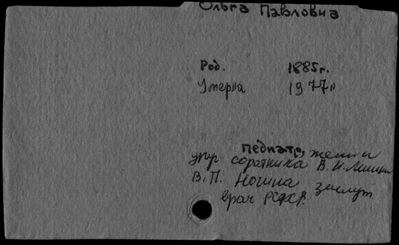 Ольга Павловна
Род. 1885г.
Умерла 1977г
педиатр, жена и
друг соратника В.И.Ленина
В.П. Ногина заслуж.
врач РСФСР.